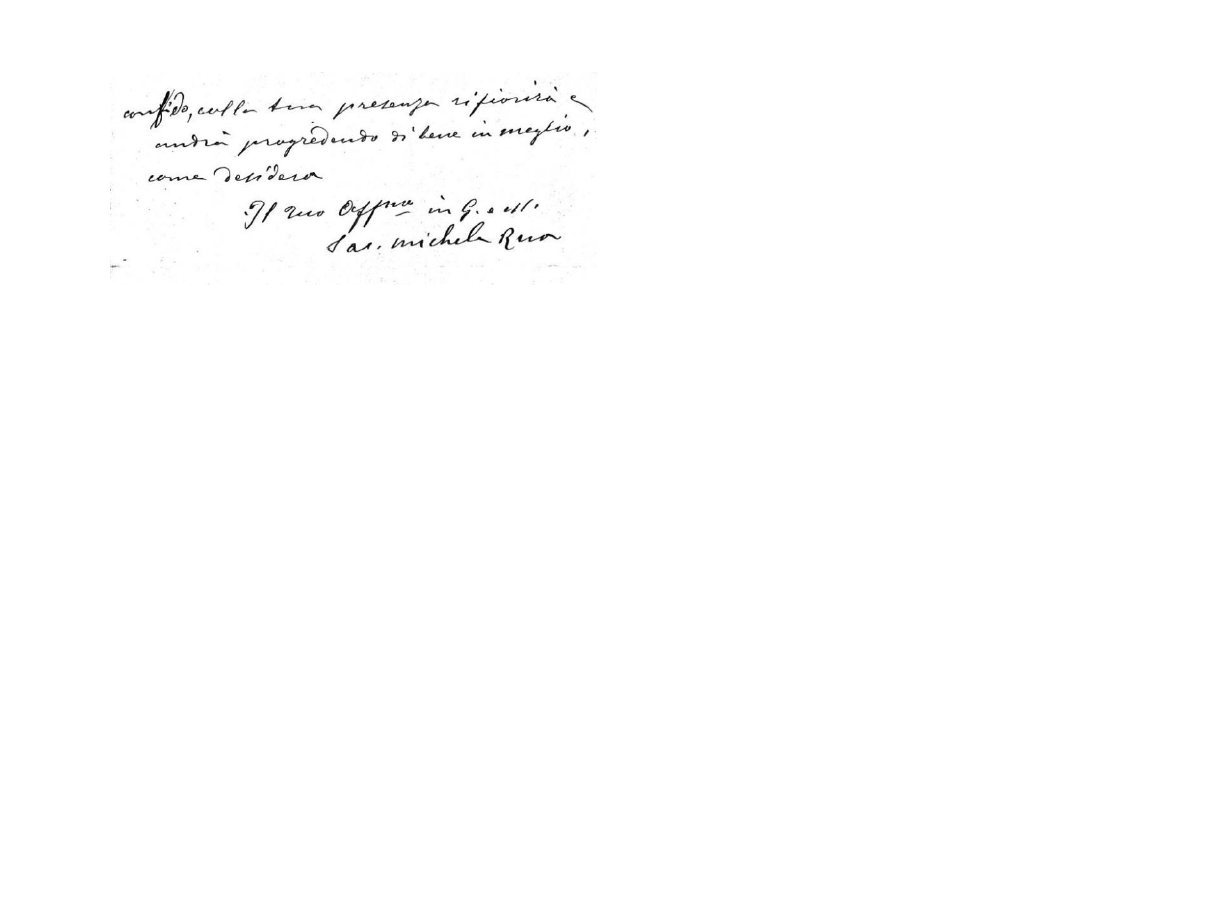 confido, colla tua presenza rifiorirà e
andrà progredendo di bene in meglio,
come desidera
Il tuo Affmo in G. e M.
Sac. Michele Rua